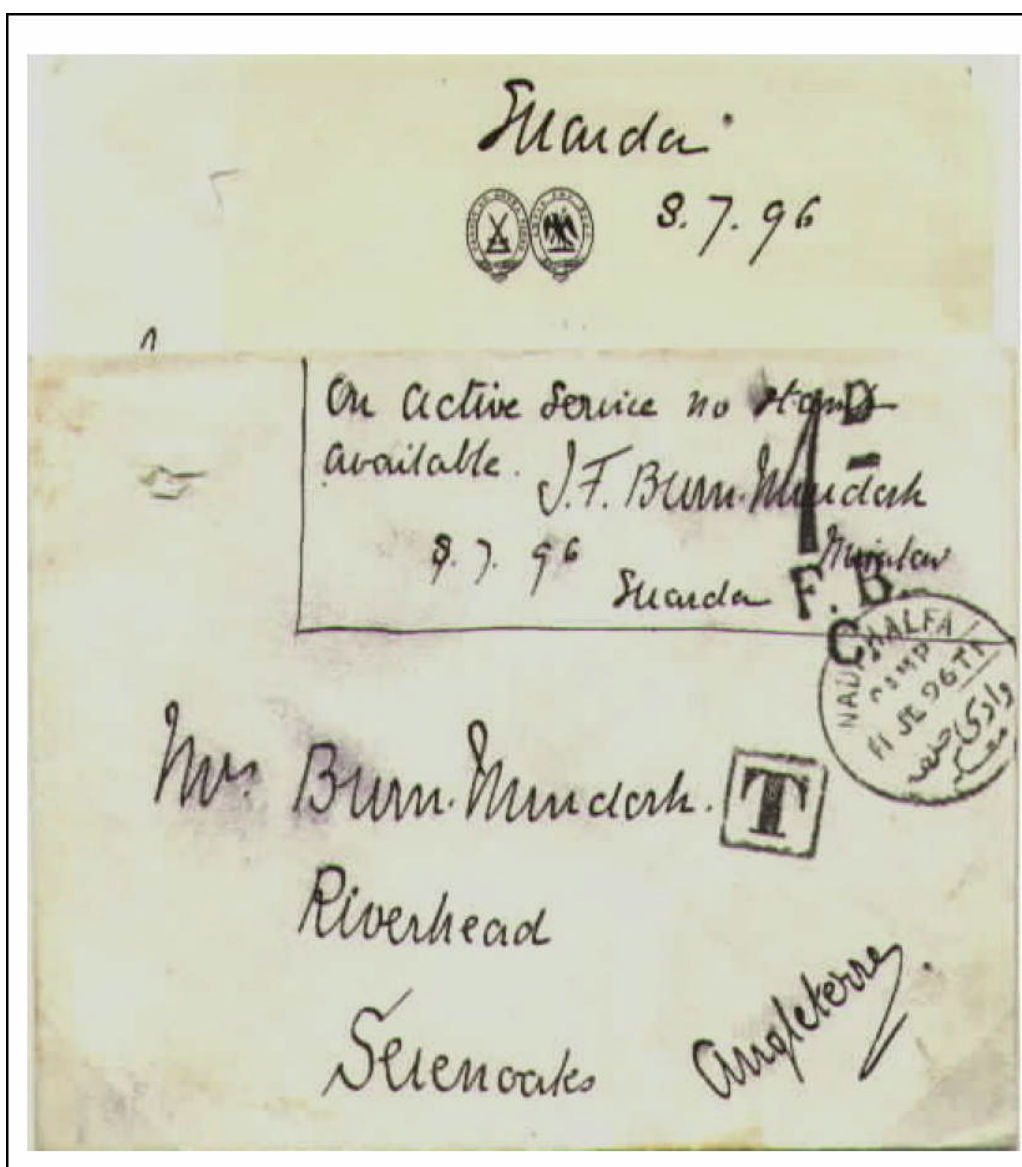 Suarda
8.7.96
On active service no stamps
available. J.F. Burn-Murdoch
8.7.96
Suarda
1D
F.B.
C
HALFA
CAMP
وادى حلفا
T
Mrs Burn-Murdoch.
Riverhead
Sevenoaks
Angleterre.